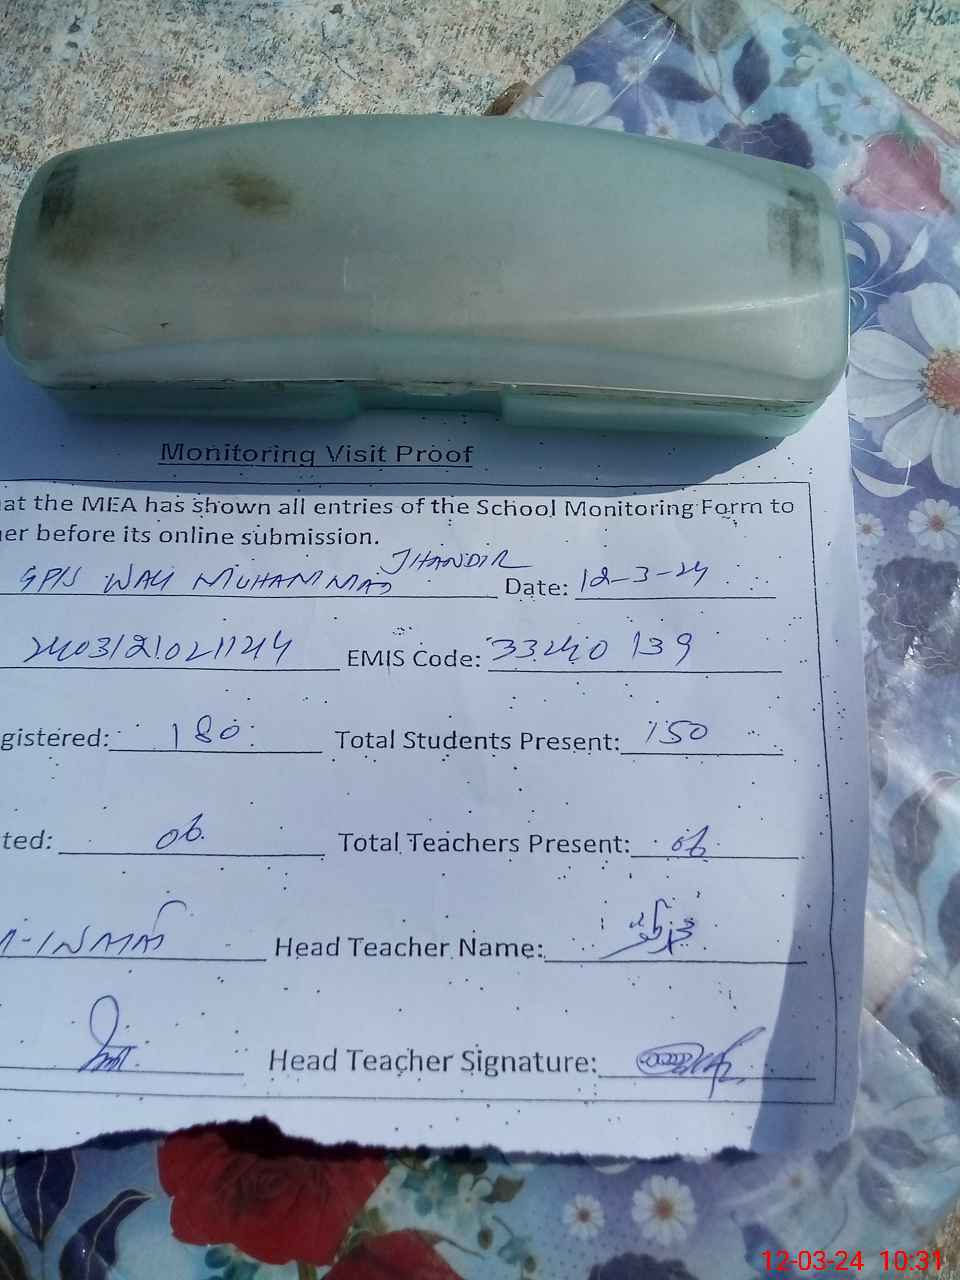 Monitoring Visit Proof
at the MEA has shown all entries of the School Monitoring Form to
er before its online submission.
GPS WALI MUHAMMAD JHANDIR Date: 12-3-24
EMIS Code: 33240139
gistered: 180 Total Students Present: 150
ted: 06 Total Teachers Present: 06
Head Teacher Name:
Head Teacher Signature:
12-03-24 10:31